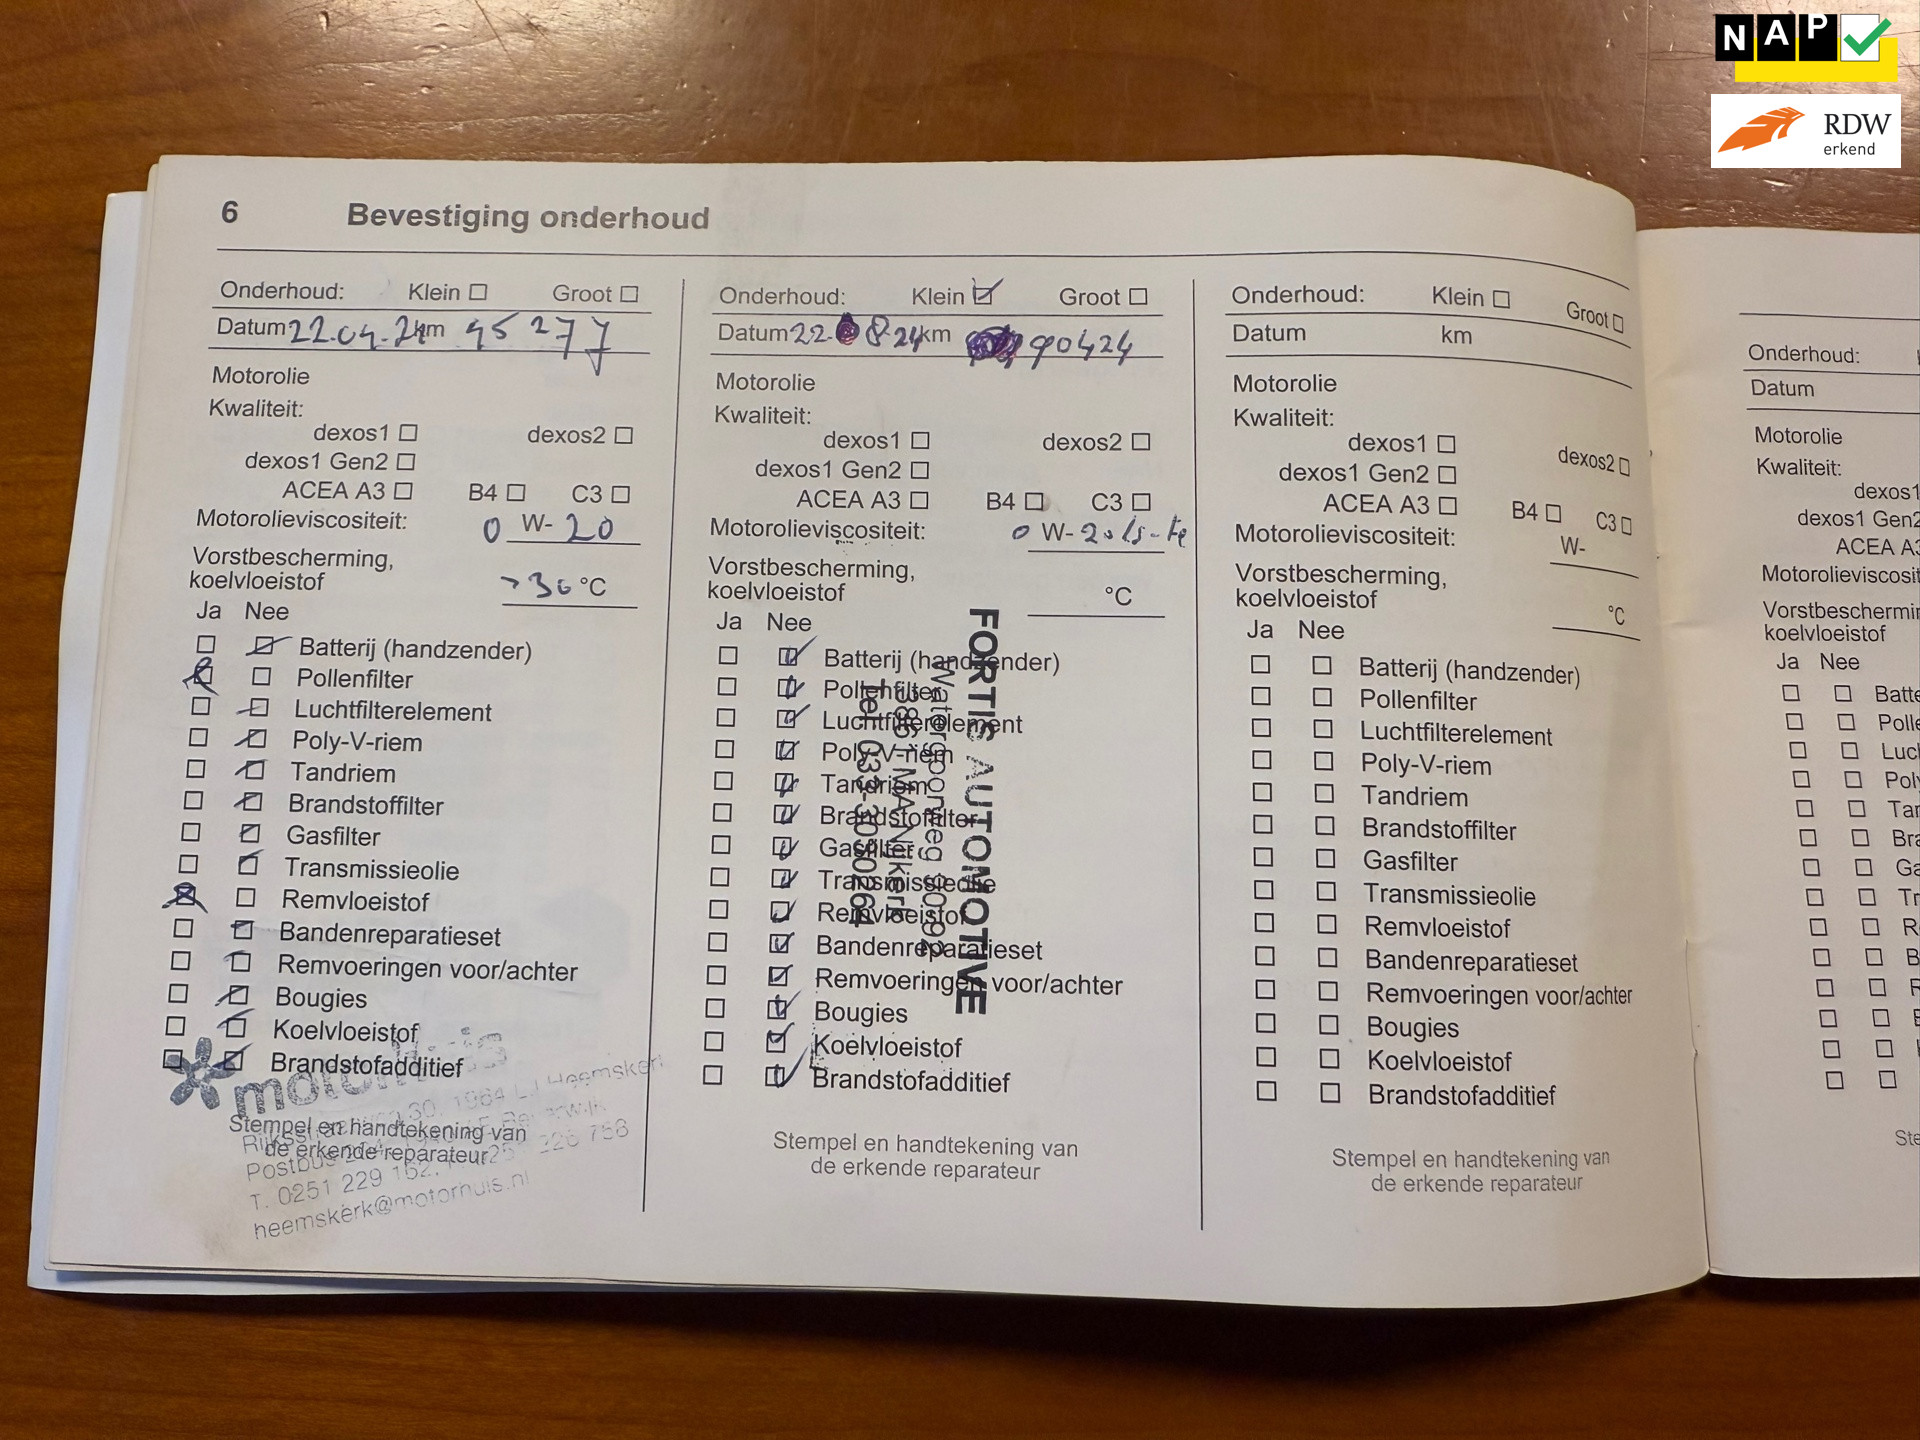 NAP
RDW
erkend
6 Bevestiging onderhoud
Onderhoud: Klein Groot
Datum 22.04.24 km 45 277
Motorolie
Kwaliteit:
dexos1 dexos2
dexos1 Gen2
ACEA A3 B4 C3
Motorolieviscositeit: 0 W- 20
Vorstbescherming,
koelvloeistof >30 °C
Ja Nee
Batterij (handzender)
Pollenfilter
Luchtfilterelement
Poly-V-riem
Tandriem
Brandstoffilter
Gasfilter
Transmissieolie
Remvloeistof
Bandenreparatieset
Remvoeringen voor/achter
Bougies
Koelvloeistof
Brandstofadditief
Stempel en handtekening van
de erkende reparateur
30, 1964 LJ Heemskerk
T. 0251 229 162
heemskerk@motorhuis.nl
Onderhoud: Klein Groot
Datum 22. 8.24 km 90424
Motorolie
Kwaliteit:
dexos1 dexos2
dexos1 Gen2
ACEA A3 B4 C3
Motorolieviscositeit: 0 W- 20
Vorstbescherming,
koelvloeistof °C
Ja Nee
Batterij (handzender)
Pollenfilter
Luchtfilterelement
Poly-V-riem
Tandriem
Brandstoffilter
Gasfilter
Transmissieolie
Remvloeistof
Bandenreparatieset
Remvoeringen voor/achter
Bougies
Koelvloeistof
Brandstofadditief
FORTIS AUTOMOTIVE
Watergoorweg
3861 MA Nijkerk
Tel. 033-3030264
Stempel en handtekening van
de erkende reparateur
Onderhoud: Klein Groot
Datum km
Motorolie
Kwaliteit:
dexos1 dexos2
dexos1 Gen2
ACEA A3 B4 C3
Motorolieviscositeit: W-
Vorstbescherming,
koelvloeistof °C
Ja Nee
Batterij (handzender)
Pollenfilter
Luchtfilterelement
Poly-V-riem
Tandriem
Brandstoffilter
Gasfilter
Transmissieolie
Remvloeistof
Bandenreparatieset
Remvoeringen voor/achter
Bougies
Koelvloeistof
Brandstofadditief
Stempel en handtekening van
de erkende reparateur
Onderhoud:
Datum
Motorolie
Kwaliteit:
dexos1
dexos1 Gen2
ACEA A3
Motorolieviscosit
Vorstbeschermin
koelvloeistof
Ja Nee
Batte
Polle
Luc
Poly
Tar
Bra
Ga
Tr
R
B
Ste